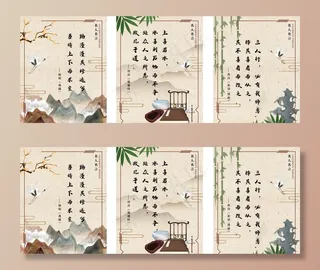 路漫漫其修远兮
吾将上下而求索
上善若水
水善利万物而不争
处众人之所恶
故几于道
三人行，必有我师焉
择其善者而从之
其不善者而改之
路漫漫其修远兮
吾将上下而求索
上善若水
水善利万物而不争
处众人之所恶
故几于道
三人行，必有我师焉
择其善者而从之
其不善者而改之